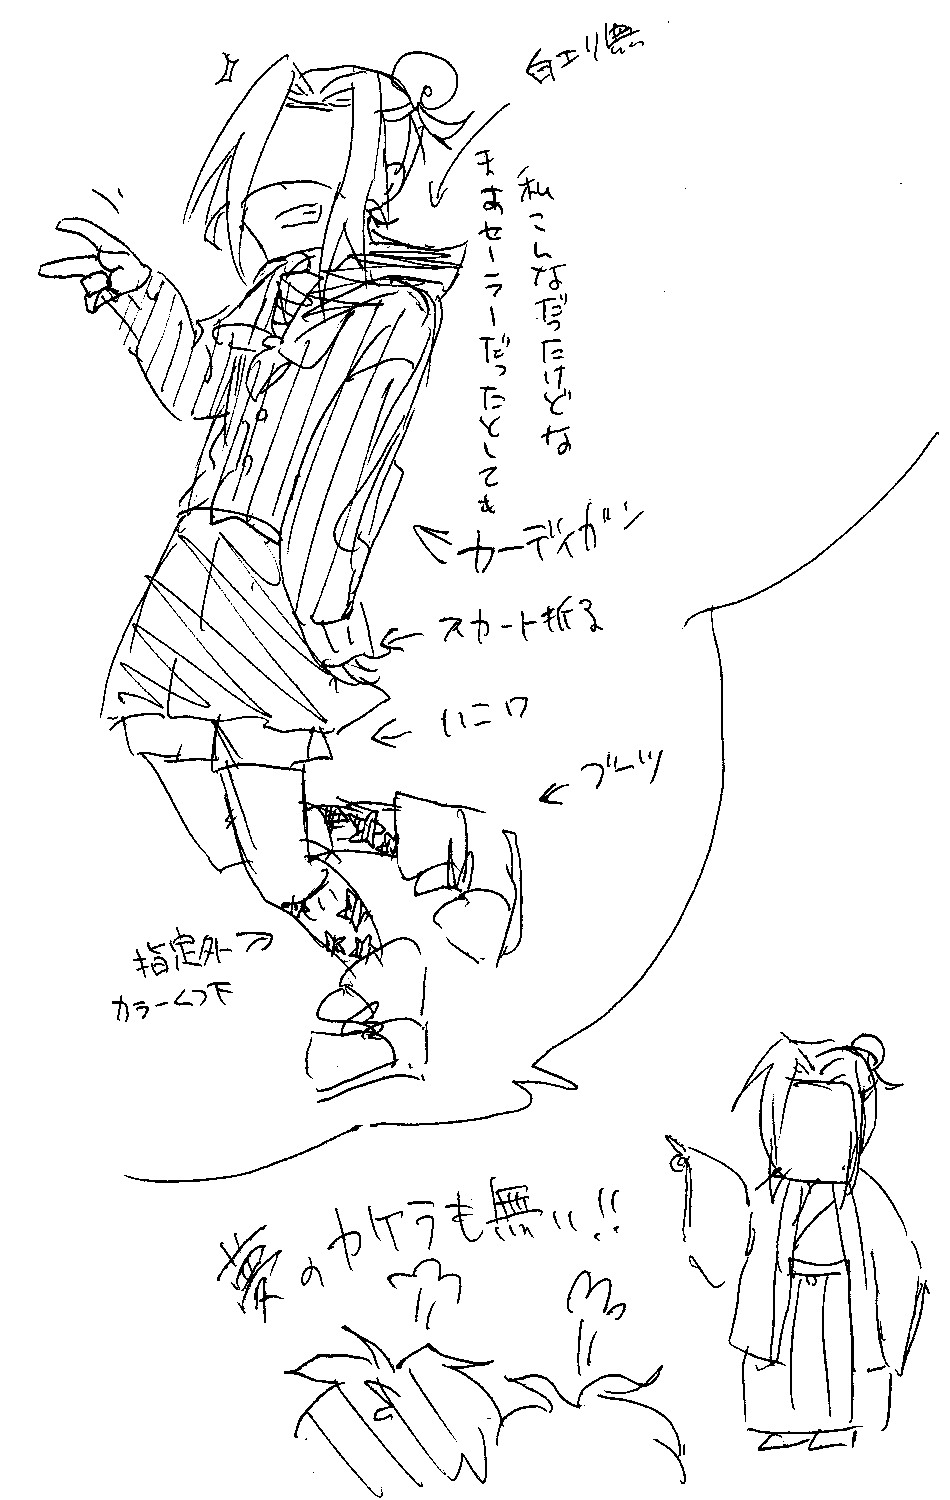 白エリ無
私こんなだったけどな
まあセーラーだったとしても
カーディガン
スカート折る
ハニワ
ブーツ
指定外
カラーくつ下
愛のカケラも無い!!